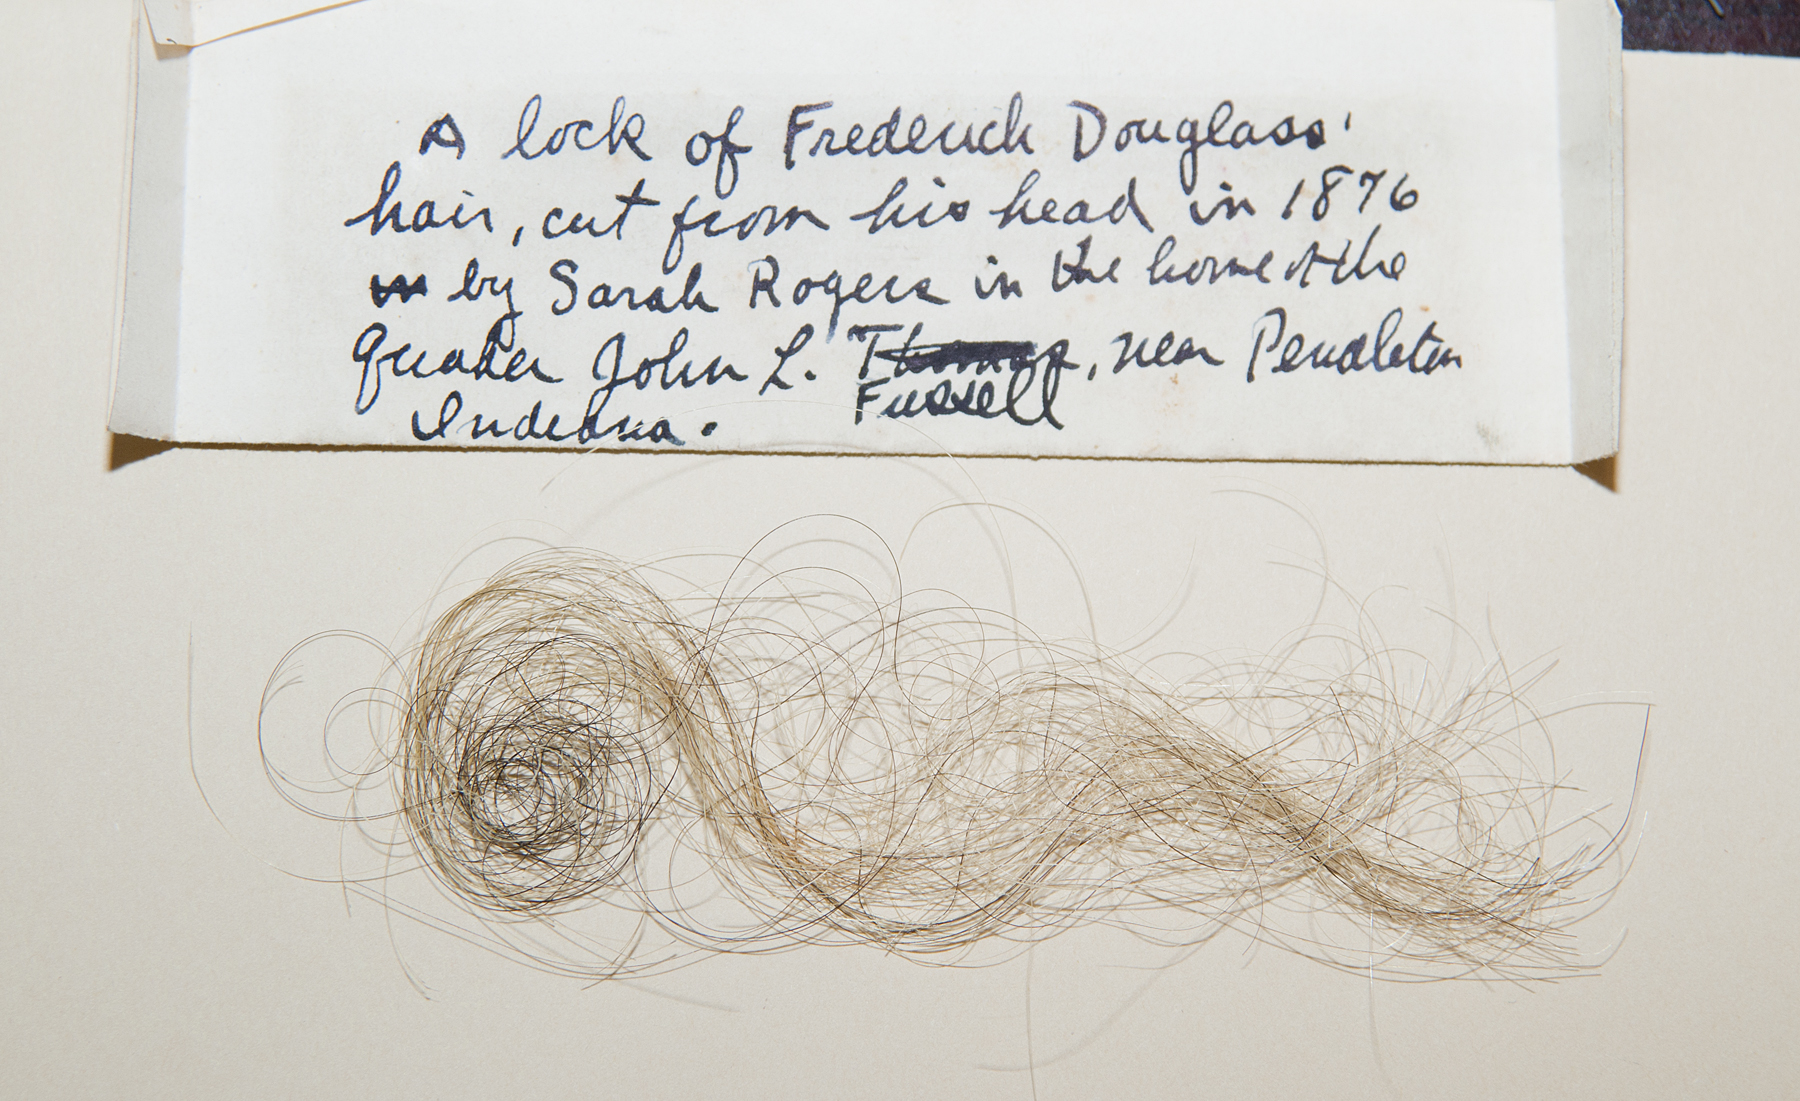 A lock of Frederick Douglass'
hair, cut from his head in 1876
by Sarah Rogers in the home of the
Quaker John L. Thomas, near Pendleton
Fussell
Indiana.